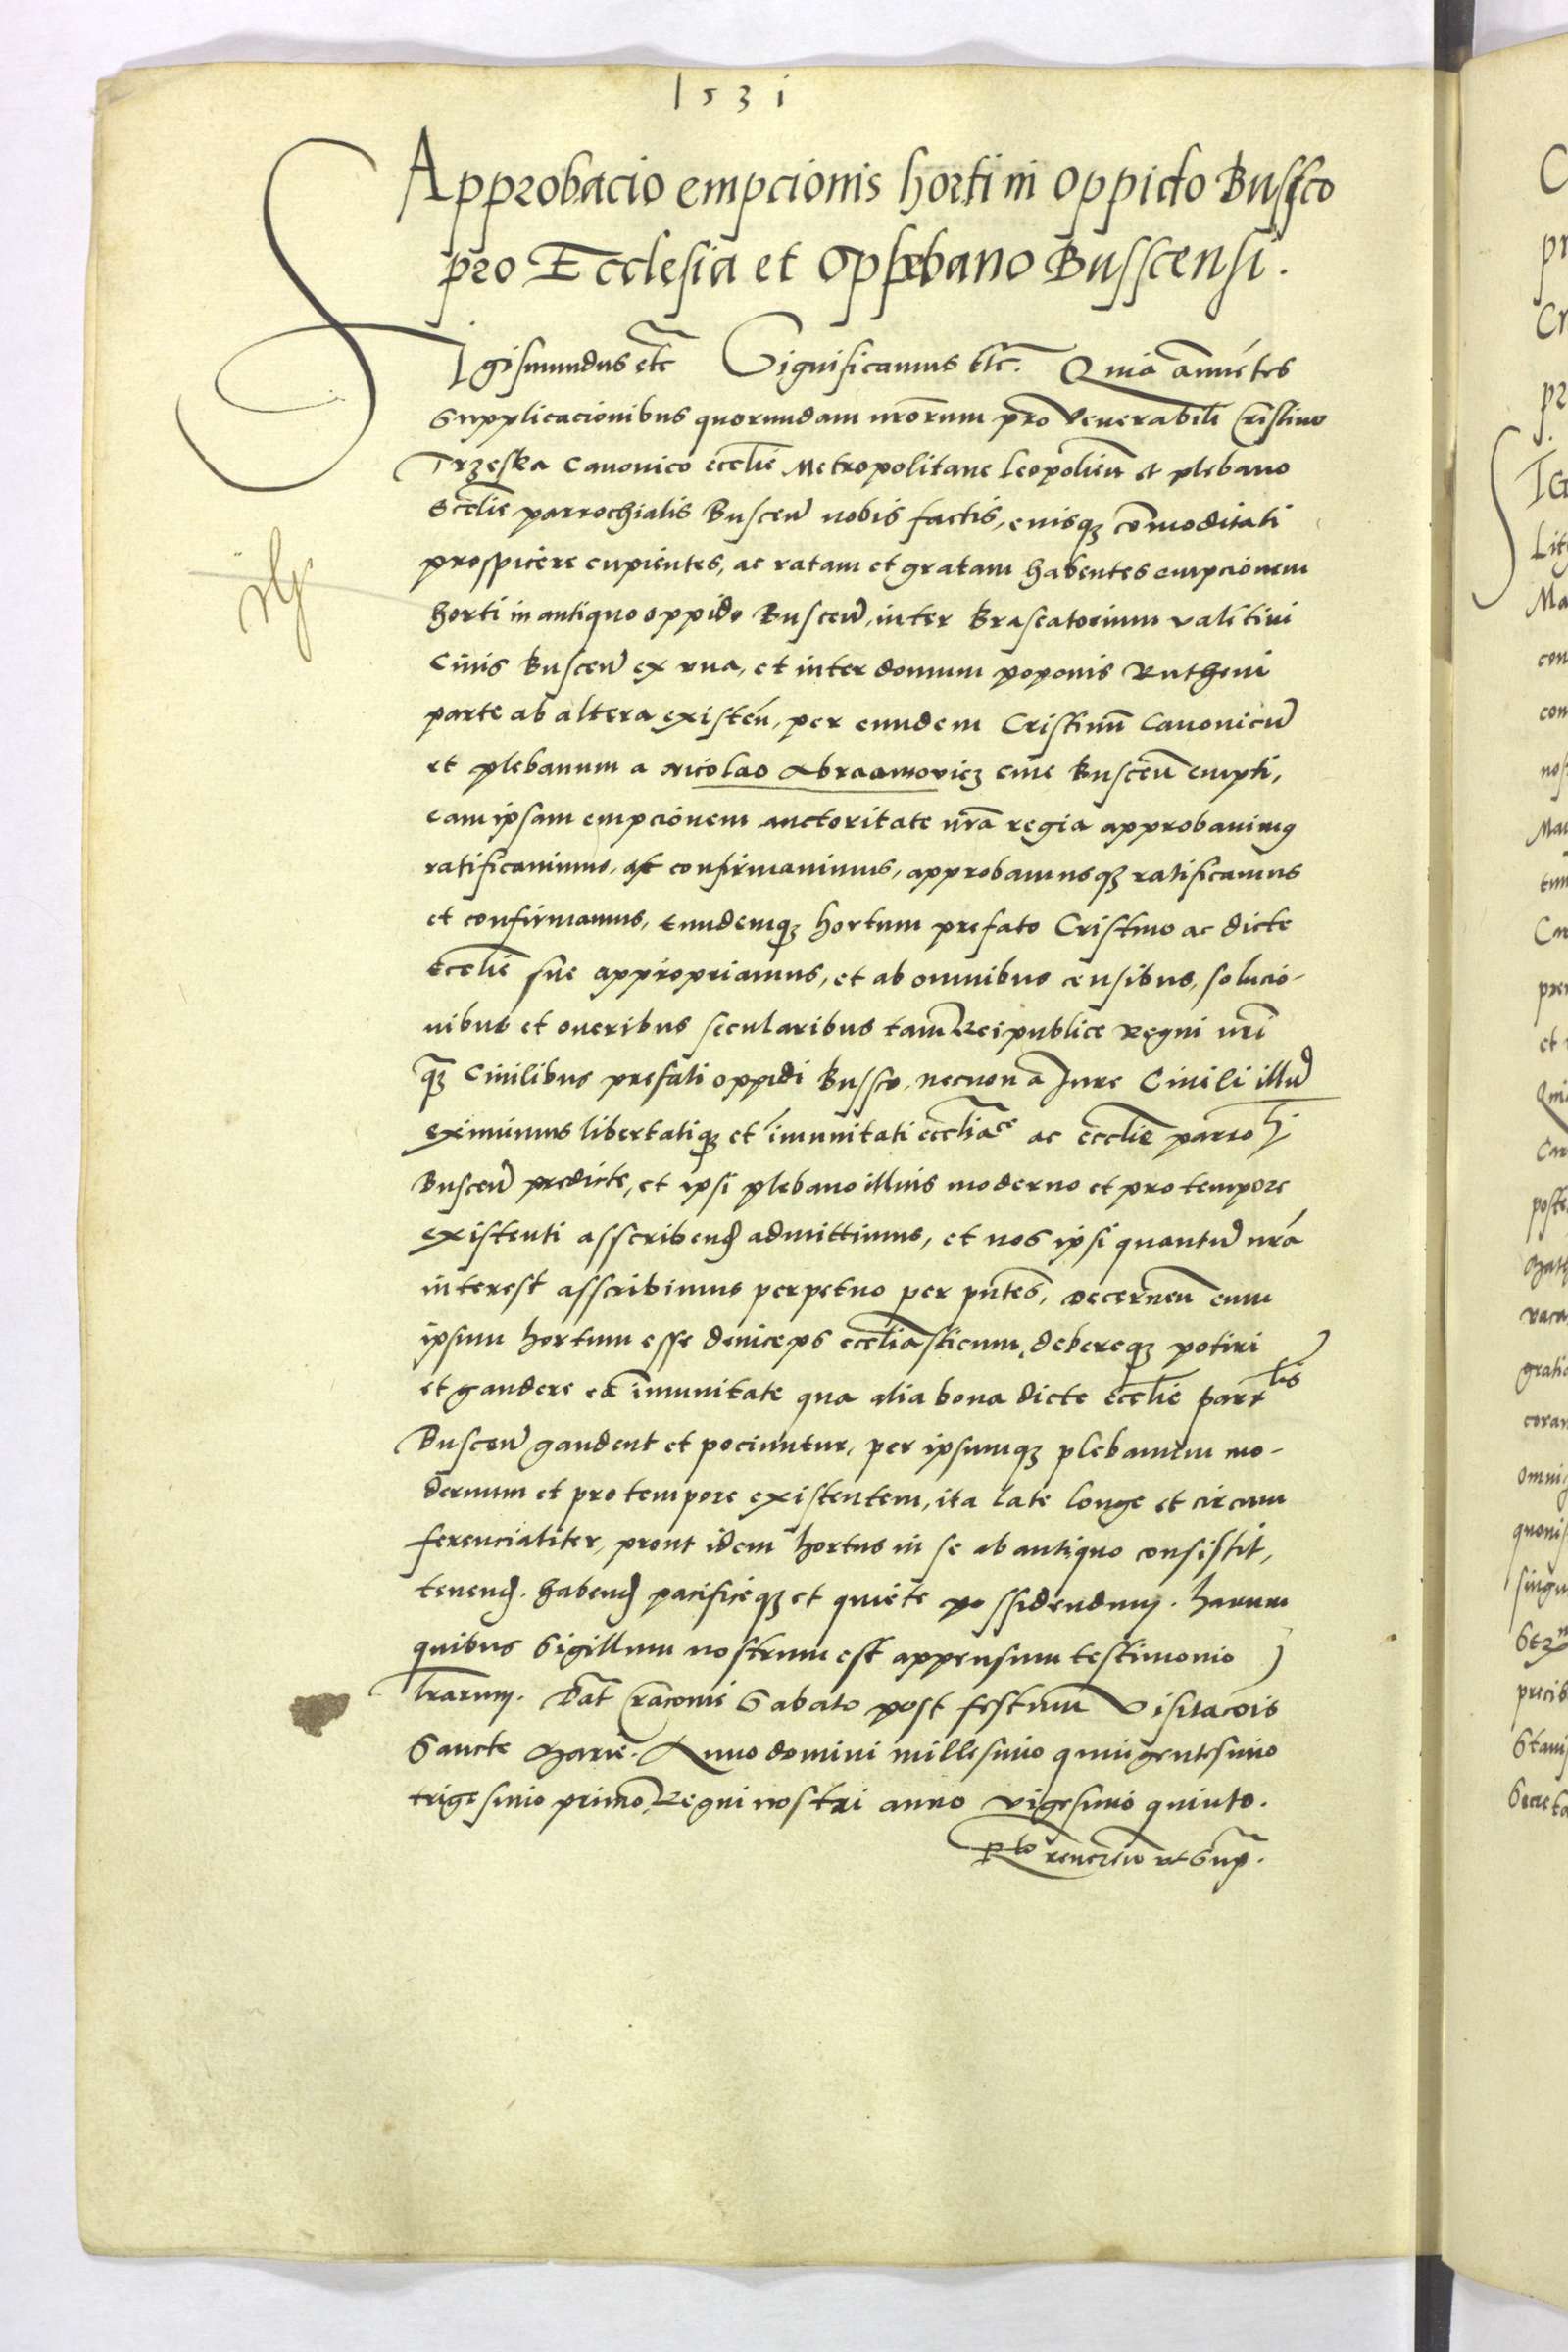 1531
Approbacio empcionis horti in oppido Bussco
pro Ecclesia et plebano Busscensi.
Sigismundus etc Significamus etc. Quia annuẽtes
Supplicacionibus quorundam nr̃orum pro Venerabili Cristino
Trzeska Canonico eccl̃ie Metropolitane Leopolieñ et plebano
Eccl̃ie parrochialis Busceñ nobis factis, eiusqꝫ cõmoditati
prospicere cupientes, ac ratam et gratam habentes empcionem
horti in antiquo oppido Busceñ, inter Braseatorium valẽtini
Civis Busceñ ex una, et inter domum poponis Rutheni
parte ab altera existeñ, per eundem Cristinũ Canonicũ
et plebanum a Nicolao Abraamovicz cive Busceñ empti,
eam ipsam empcionem auctoritate nr̃a regia approbavimꝰ
ratificavimus, ac confirmavimus, approbamusqꝫ ratificamus
et confirmamus, Eundemqꝫ hortum prefato Cristino ac dicte
eccl̃ie sue appropriamus, et ab omnibus censibus, solucio-
nibus et oneribus secularibus tam Reipublice Regni nr̃i
qꝫ Civilibus prefati oppidi Bussco, necnon a Jure Civili illũ
eximimus libertatiqꝫ et imunitati eccl̃iace ac eccl̃ie parroh
Busceñ predicte, et ipsi plebano illius moderno et pro tempore
existenti asscribend̃ admittimus, et nos ipsi quantũ nr̃a
interest asscribimus perpetuo per pñtes, decerneñ eum
ipsum hortum esse deinceps eccl̃iasticum, debereqꝫ potiri
et gaudere ea imunitate qua alia bona dicte eccl̃ie parr̃lis
Busceñ gaudent et pociuntur, per ipsumqꝫ plebanum mo-
dernum et pro tempore existentem, ita late longe et circum
ferencialiter, prout idem hortus in se ab antiquo consistit,
tenend̃. habend̃ pacificeqꝫ et quiete possidendum. harum
quibus Sigillum nostrum est appensum testimonio
lr̃arum. Dat̃ Cracovie Sabato post festum Visitacõis
Sancte Marie. Anno domini millesimo quingentesimo
trigesimo primo, Regni nostri anno vigesimo quinto.
R̃to revereñ ut Supra.